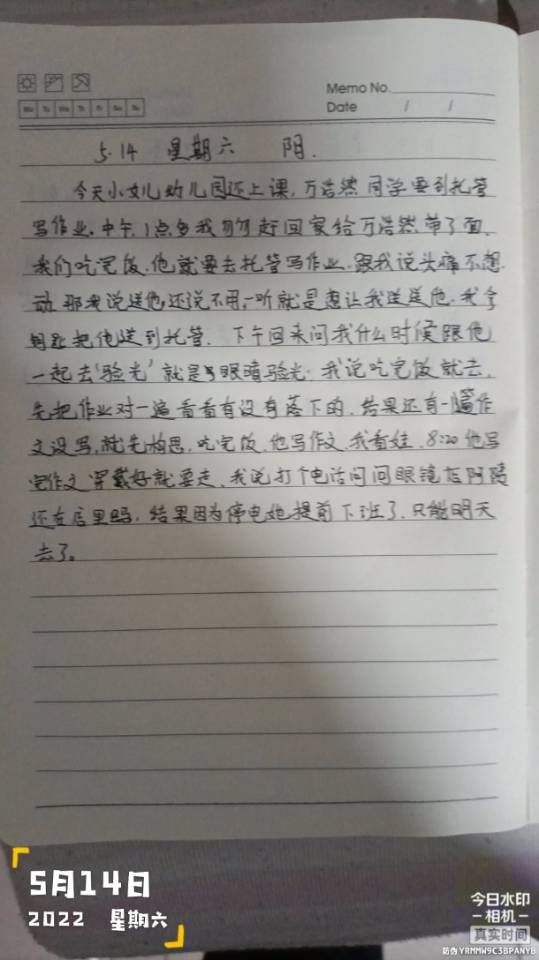 Memo No.
Mo Tu We Th Fr Sa Su
Date / /
5.14 星期六 阳.
今天小女儿幼儿园还上课,万浩然同学要到托管
写作业.中午1点多我匆匆赶回家给万浩然带了面、
我们吃完饭,他就要去托管写作业,跟我说头痛不想
动 那我说送他,还说不用,一听就是想让我送送他,我拿
钥匙把他送到托管. 下午回来问我什么时候跟他
一起去'验光'就是眼睛验光.我说吃完饭就去,
先把作业对一遍看看有没有落下的,结果还有一篇作
文没写,就先构思,吃完饭,他写作文,我看娃.8:20他写
完作文 穿戴好就要走,我说打个电话问问眼镜店阿姨
还在店里吗,结果因为停电她提前下班了,只能明天
去了。
5月14日
2022 星期六
今日水印
相机
真实时间
防伪YRMMW9C3BPANYB